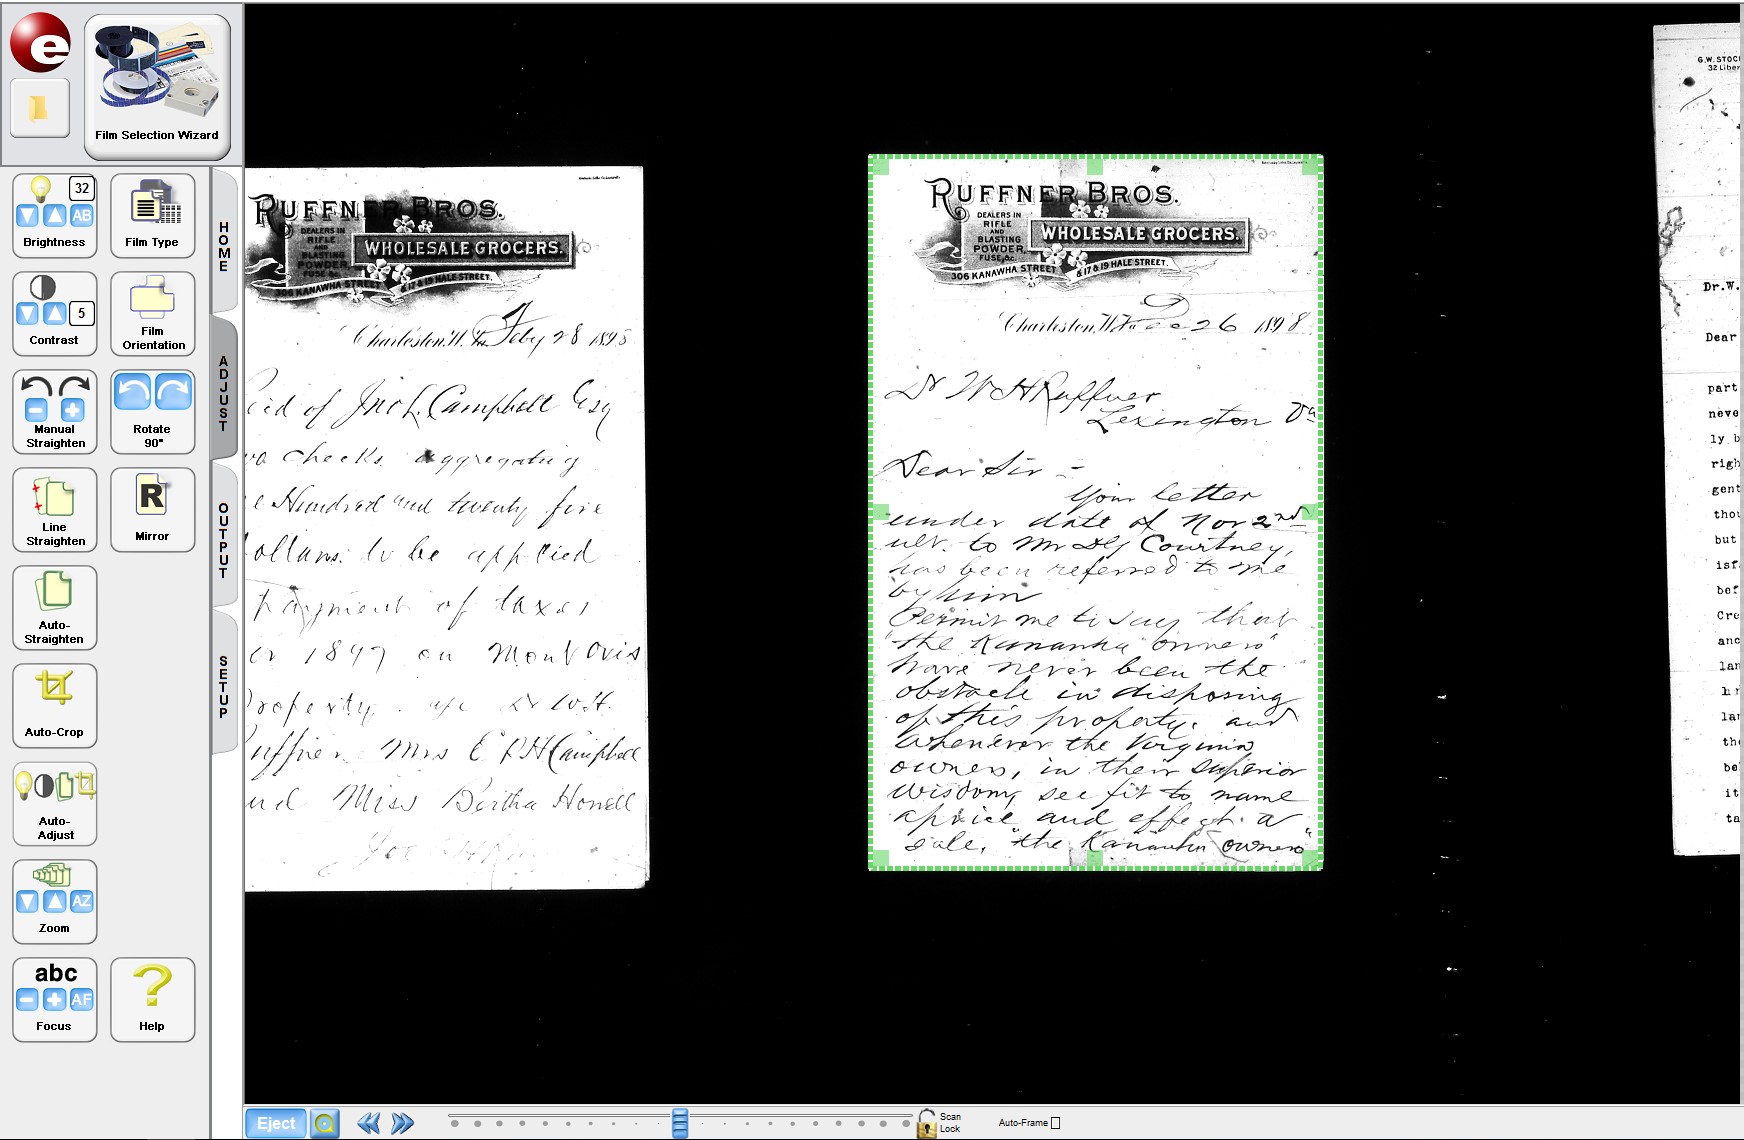 Film Selection Wizard
32
AB
Brightness
Film Type
5
Contrast
Film
Orientation
Manual
Straighten
Rotate
90°
Line
Straighten
R
Mirror
Auto-
Straighten
Auto-Crop
Auto-
Adjust
AZ
Zoom
abc
AF
Focus
Help
HOME
ADJUST
OUTPUT
SETUP
RUFFNER BROS.
DEALERS IN
RIFLE
AND
BLASTING
POWDER,
FUSE &c.
WHOLESALE GROCERS.
306 KANAWHA STREET
& 17 & 19 HALE STREET.
Charleston, W. Va. Feby 28 1895
of Jno L. Campbell Esq
checks aggregating
Hundred and twenty five
to be applied
payment of taxes
1897 on Mont Ovis
Property. Dr W.H.
Mrs E P H Campbell
Miss Bertha Howell
RUFFNER BROS.
DEALERS IN
RIFLE
AND
BLASTING
POWDER,
FUSE, &c.
WHOLESALE GROCERS.
306 KANAWHA STREET
& 17 & 19 HALE STREET.
Charleston, W. Va Dec 26 1898
Dr W H Ruffner
Lexington Va
Dear Sir -
Your letter
under date of Nov 2nd
ult. to Mr Courtney,
has been referred to me
by him
Permit me to say that
"the Kanawha owners"
have never been the
obstacle in disposing
of this property, and
whenever the Virginia
owners, in their superior
wisdom, see fit to name
a price and effect a
sale, "the Kanawha owners"
G.W. STOC
32 Liber
Dr.W.
Dear
part
neve
ly b
righ
gent
thou
but
isf
bef
Cre
and
lan
lar
the
be
it
ta
Eject
Scan
Lock
Auto-Frame